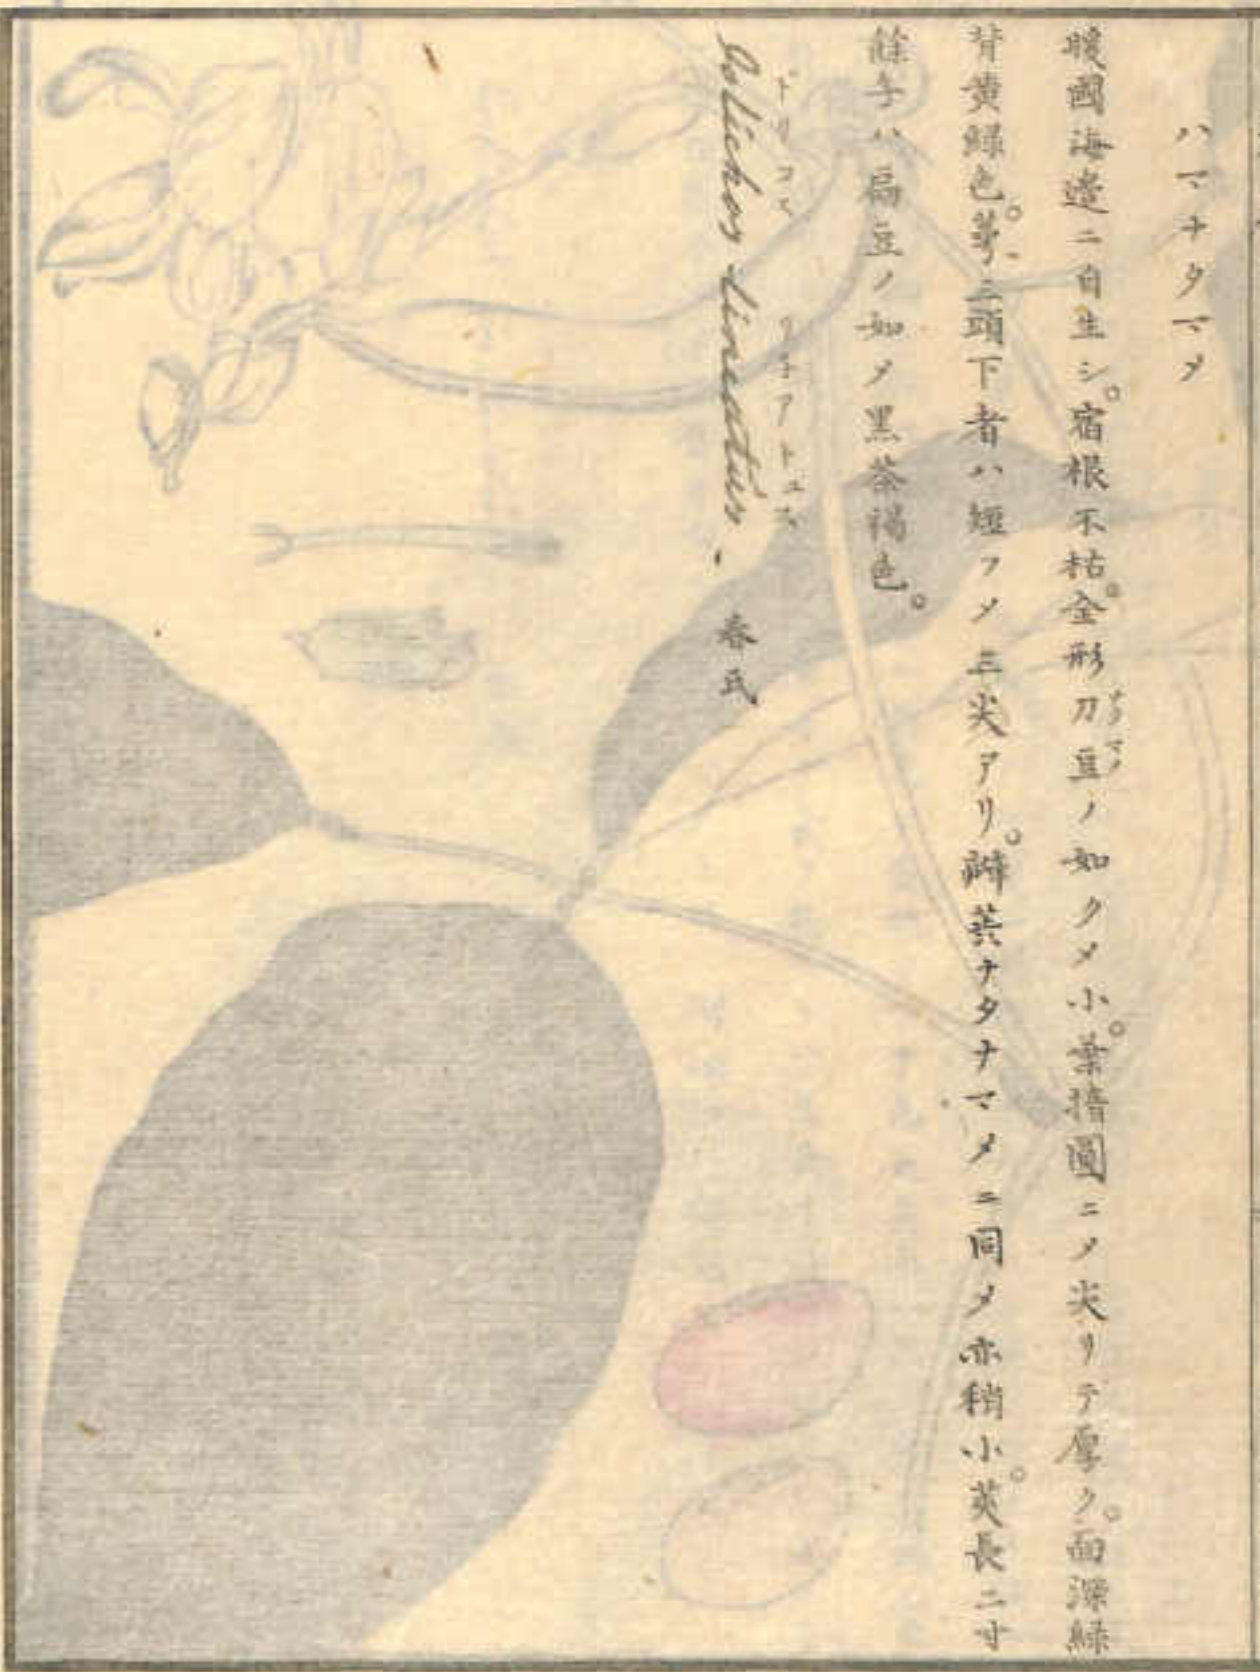 ハマナタマメ
暖國海邉ニ自生シ。宿根不枯。全形刀豆ノ如クメ小。葉撱圓ニメ尖リテ厚ク。面深緑
ナタマメ
背黄緑色。萼二頭下者ハ短フメ三尖アリ。瓣蕋ナタナマメニ同メ亦稍小。莢長二寸
餘子ハ扁豆ノ如メ黒茶褐色。
ドリコス リ子アトュス
Dolichos lineatus. 春氏